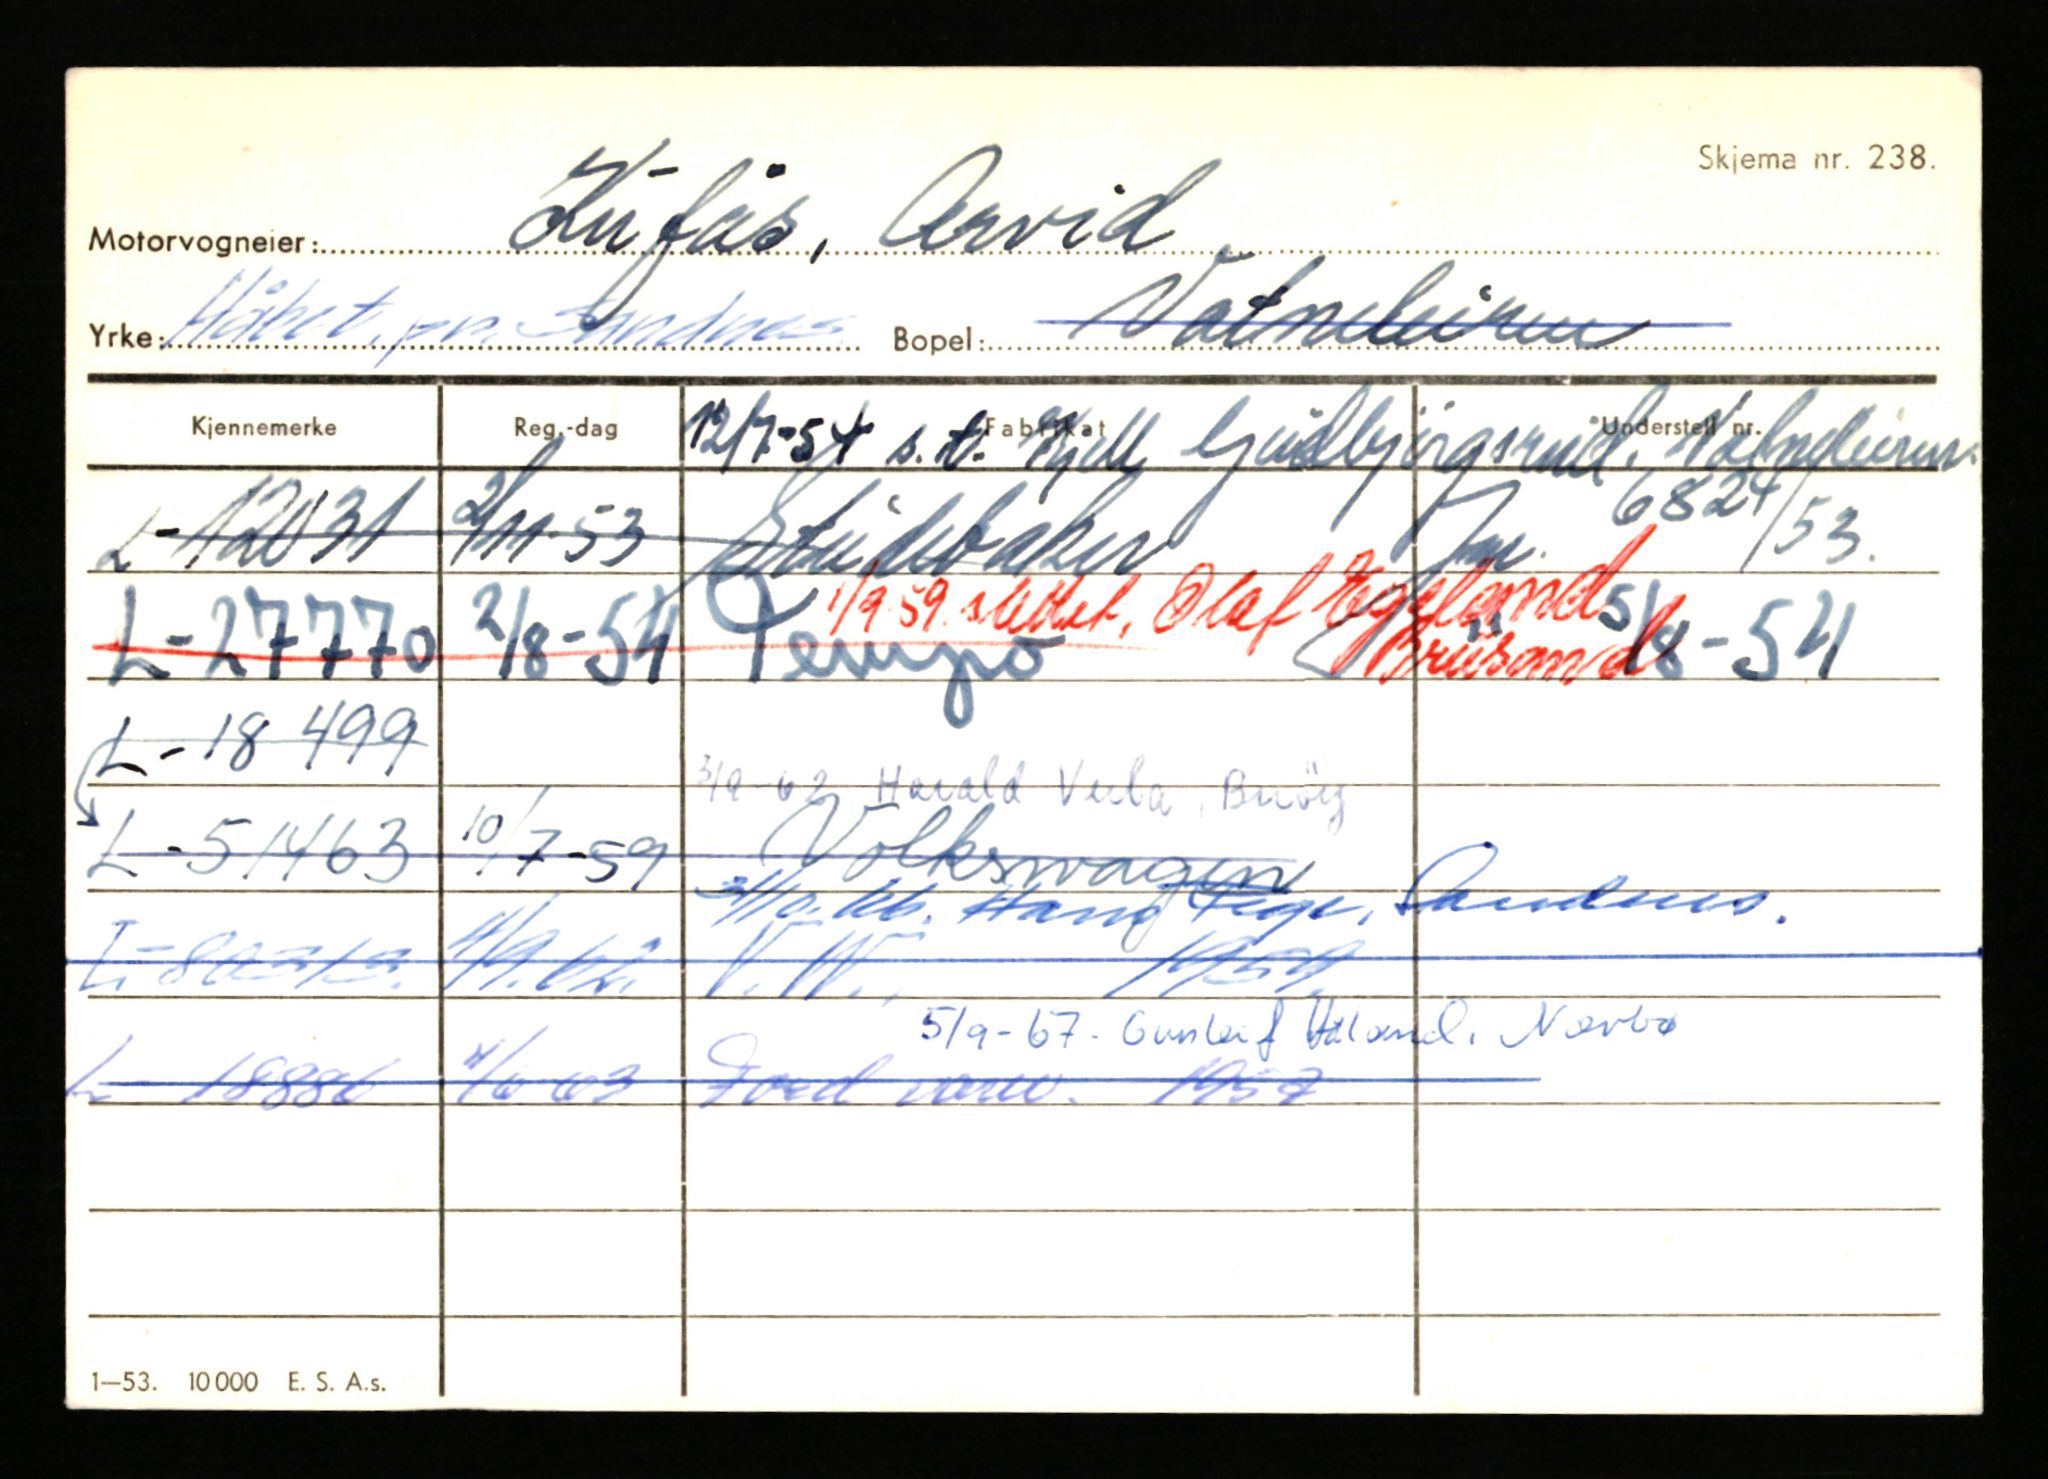 Skjema nr. 238.
Motorvogneier: Arvid
Yrke: pr. Sandnes Bopel: Vatneleiren
Kjennemerke Reg.-dag Fabrikat Understell nr.
12/7-54 s.t. Kjell Gudbjørgsrud, Vatneleiren.
L-12031 2/11-53 Studebaker 6824/53.
1/9 59. slettet, Olaf Egeland
L-27770 2/8-54 Tempo Brusand 5/8-54
L-18 499
3/9-62 Harald Verla,
L-51463 10/7-59 Volkswagen
Hans Sandnes.
L-80313. 4/9.62. V.W. 1959.
5/9-67. Gunleif Håland, Nærbø
L-18886 4/6 63 Ford varev. 1957
1—53. 10 000 E. S. A.s.